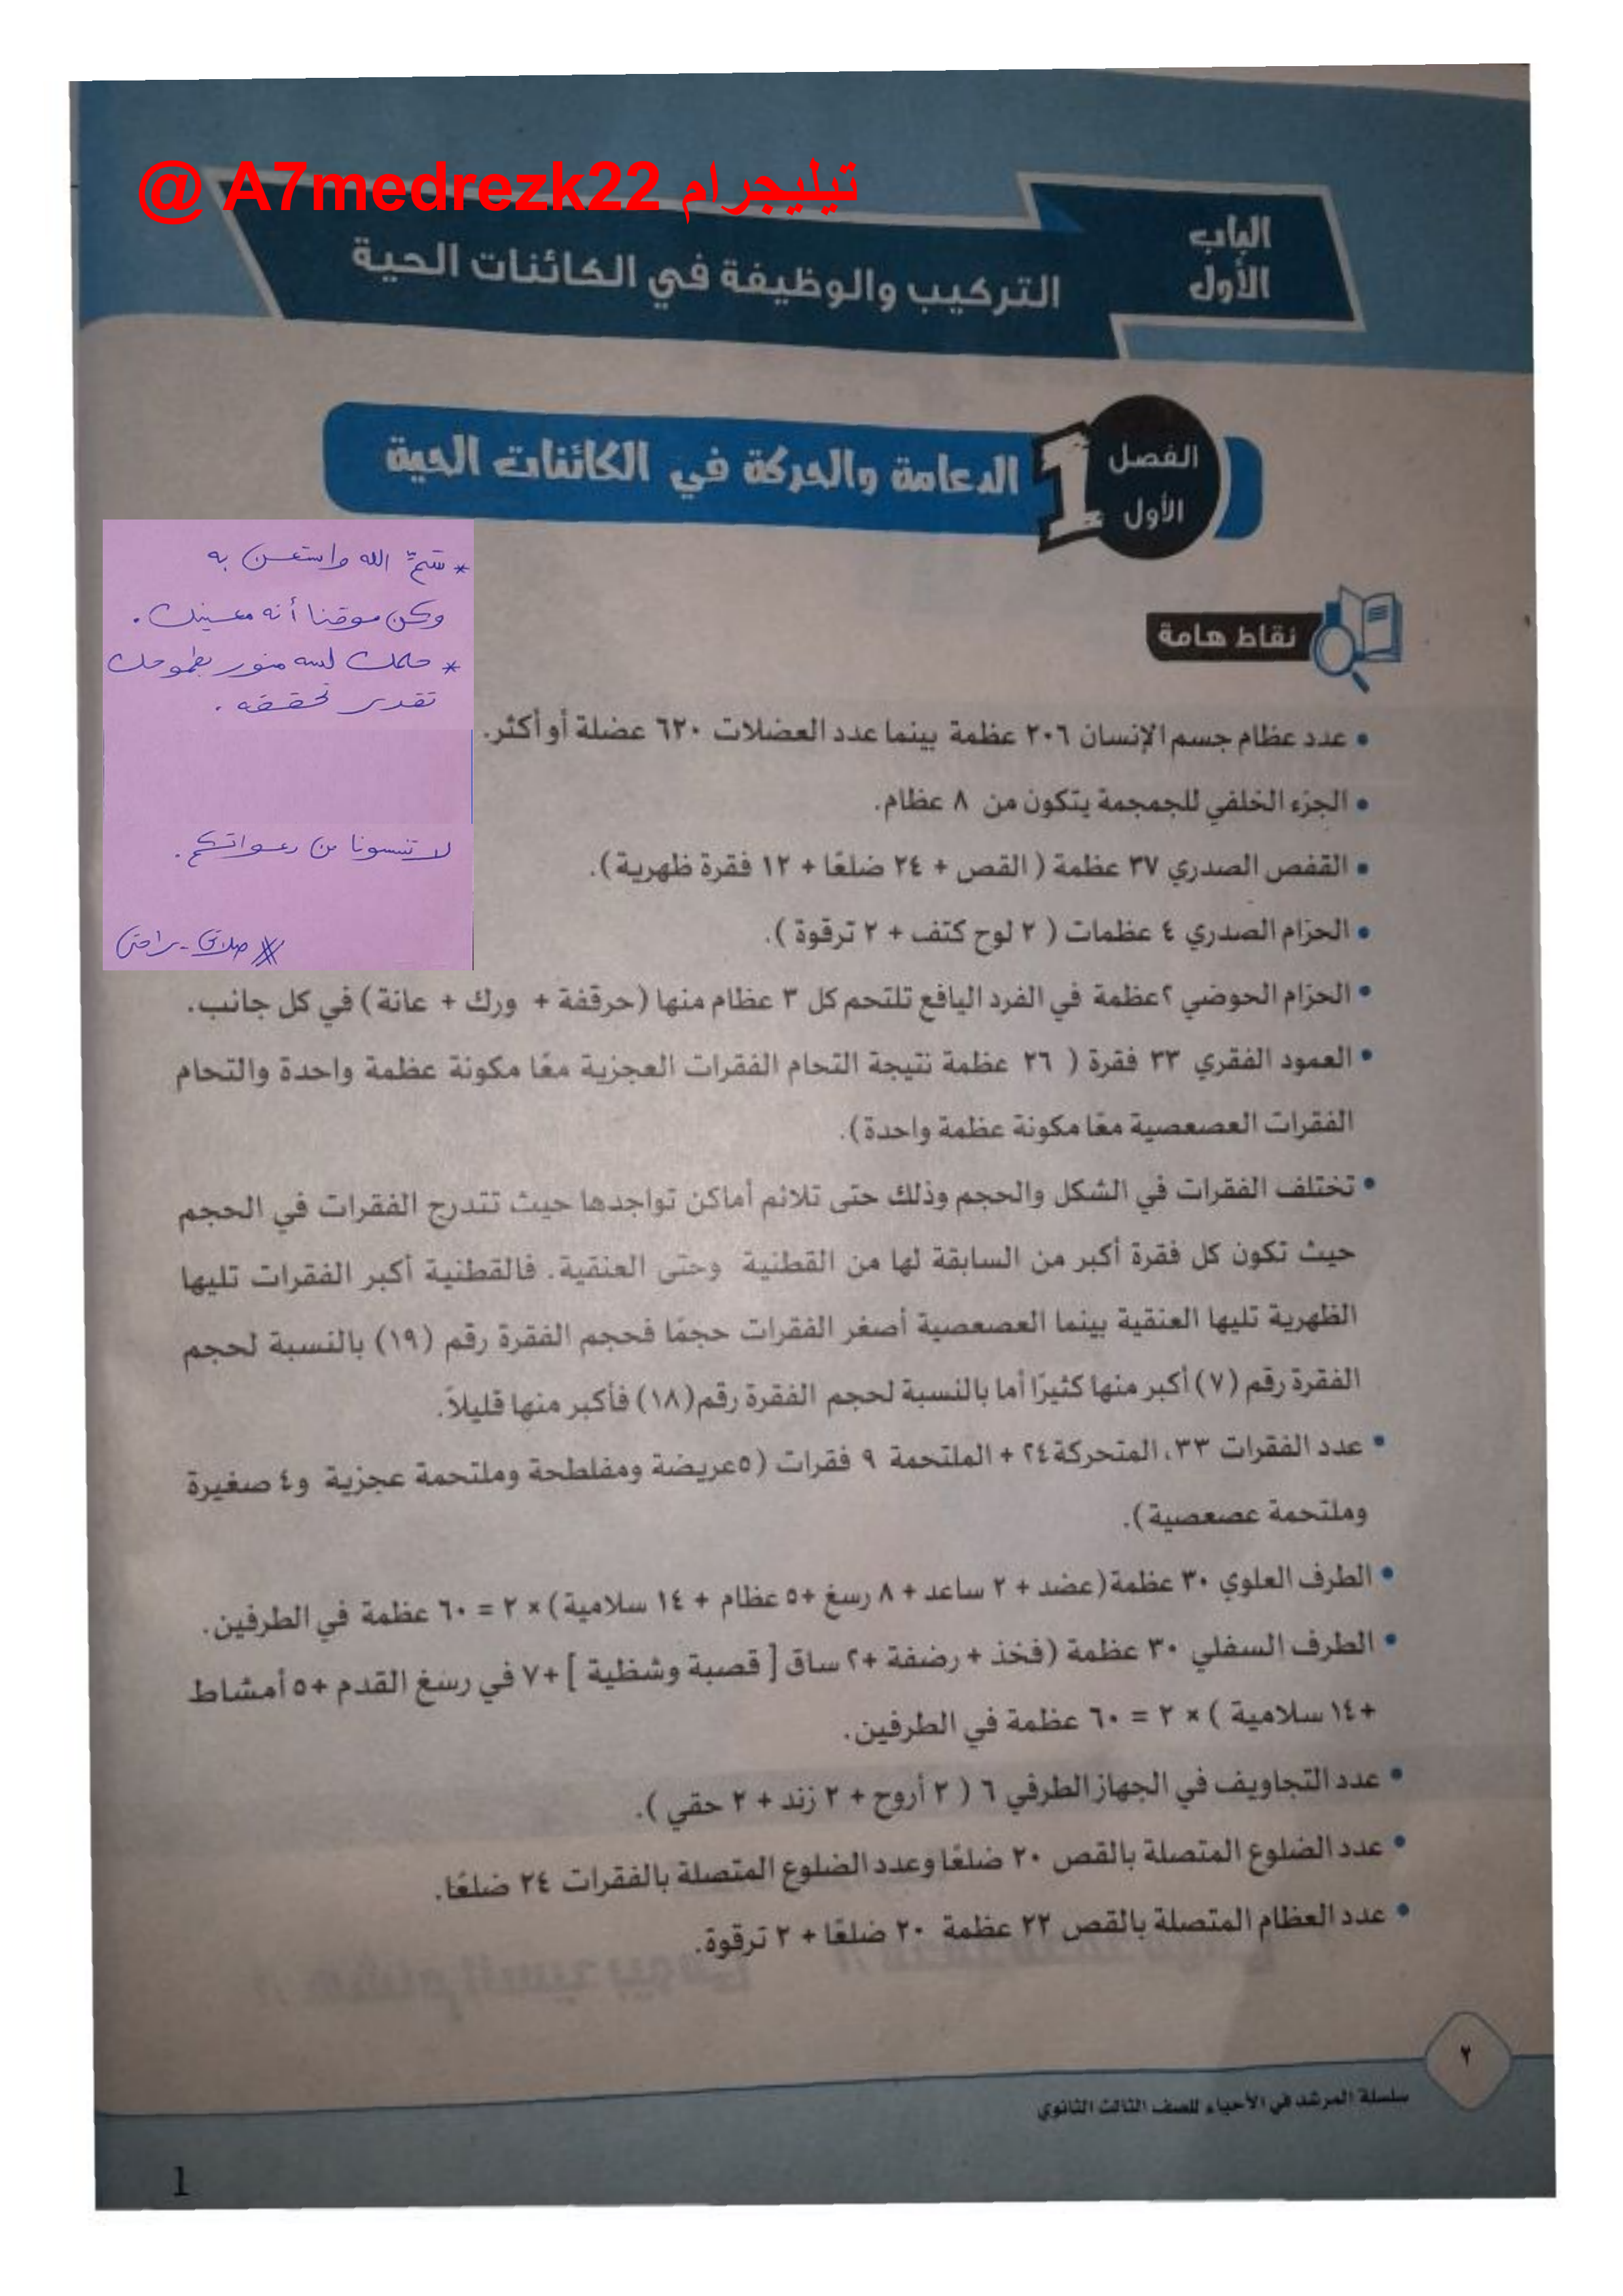 @ A7medrezk22 تيليجرام
الباب
الأول
التركيب والوظيفة في الكائنات الحية
الفصل
الأول
1
الدعامة والحركة في الكائنات الحية
* سَمِّ الله واستعن به
وكن موقنا أنه معينك.
* حلمك لسه منور بطموحك
تقدر تحققه.
لا تنسونا من دعواتكم.
نقاط هامة
• عدد عظام جسم الإنسان ٢٠٦ عظمة بينما عدد العضلات ٦٢٠ عضلة أو أكثر.
• الجزء الخلفي للجمجمة يتكون من ٨ عظام.
• القفص الصدري ٣٧ عظمة ( القص + ٢٤ ضلعًا + ١٢ فقرة ظهرية).
• الحزام الصدري ٤ عظمات ( ٢ لوح كتف + ٢ ترقوة ).
• الحزام الحوضي ٢عظمة في الفرد اليافع تلتحم كل ٣ عظام منها (حرقفة + ورك + عانة) في كل جانب.
• العمود الفقري ٣٣ فقرة ( ٢٦ عظمة نتيجة التحام الفقرات العجزية معًا مكونة عظمة واحدة والتحام
الفقرات العصعصية معًا مكونة عظمة واحدة).
• تختلف الفقرات في الشكل والحجم وذلك حتى تلائم أماكن تواجدها حيث تتدرج الفقرات في الحجم
حيث تكون كل فقرة أكبر من السابقة لها من القطنية وحتى العنقية. فالقطنية أكبر الفقرات تليها
الظهرية تليها العنقية بينما العصعصية أصغر الفقرات حجمًا فحجم الفقرة رقم (١٩) بالنسبة لحجم
الفقرة رقم (٧) أكبر منها كثيرًا أما بالنسبة لحجم الفقرة رقم(١٨) فأكبر منها قليلاً.
• عدد الفقرات ٣٣، المتحركة٢٤ + الملتحمة ٩ فقرات (٥عريضة ومفلطحة وملتحمة عجزية و٤ صغيرة
وملتحمة عصعصية).
• الطرف العلوي ٣٠ عظمة(عضد + ٢ ساعد + ٨ رسغ +٥ عظام + ١٤ سلامية) × ٢ = ٦٠ عظمة في الطرفين.
• الطرف السفلي ٣٠ عظمة (فخذ + رضفة +٢ ساق [ قصبة وشظية ] +٧ في رسغ القدم +٥ أمشاط
+١٤ سلامية ) × ٢ = ٦٠ عظمة في الطرفين.
• عدد التجاويف في الجهاز الطرفي ٦ ( ٢ أروح + ٢ زند + ٢ حقي ).
• عدد الضلوع المتصلة بالقص ٢٠ ضلعًا وعدد الضلوع المتصلة بالفقرات ٢٤ ضلعًا.
• عدد العظام المتصلة بالقص ٢٢ عظمة ٢٠ ضلعًا + ٢ ترقوة.
٢
سلسلة المرشد في الأحياء للصف الثالث الثانوي
1